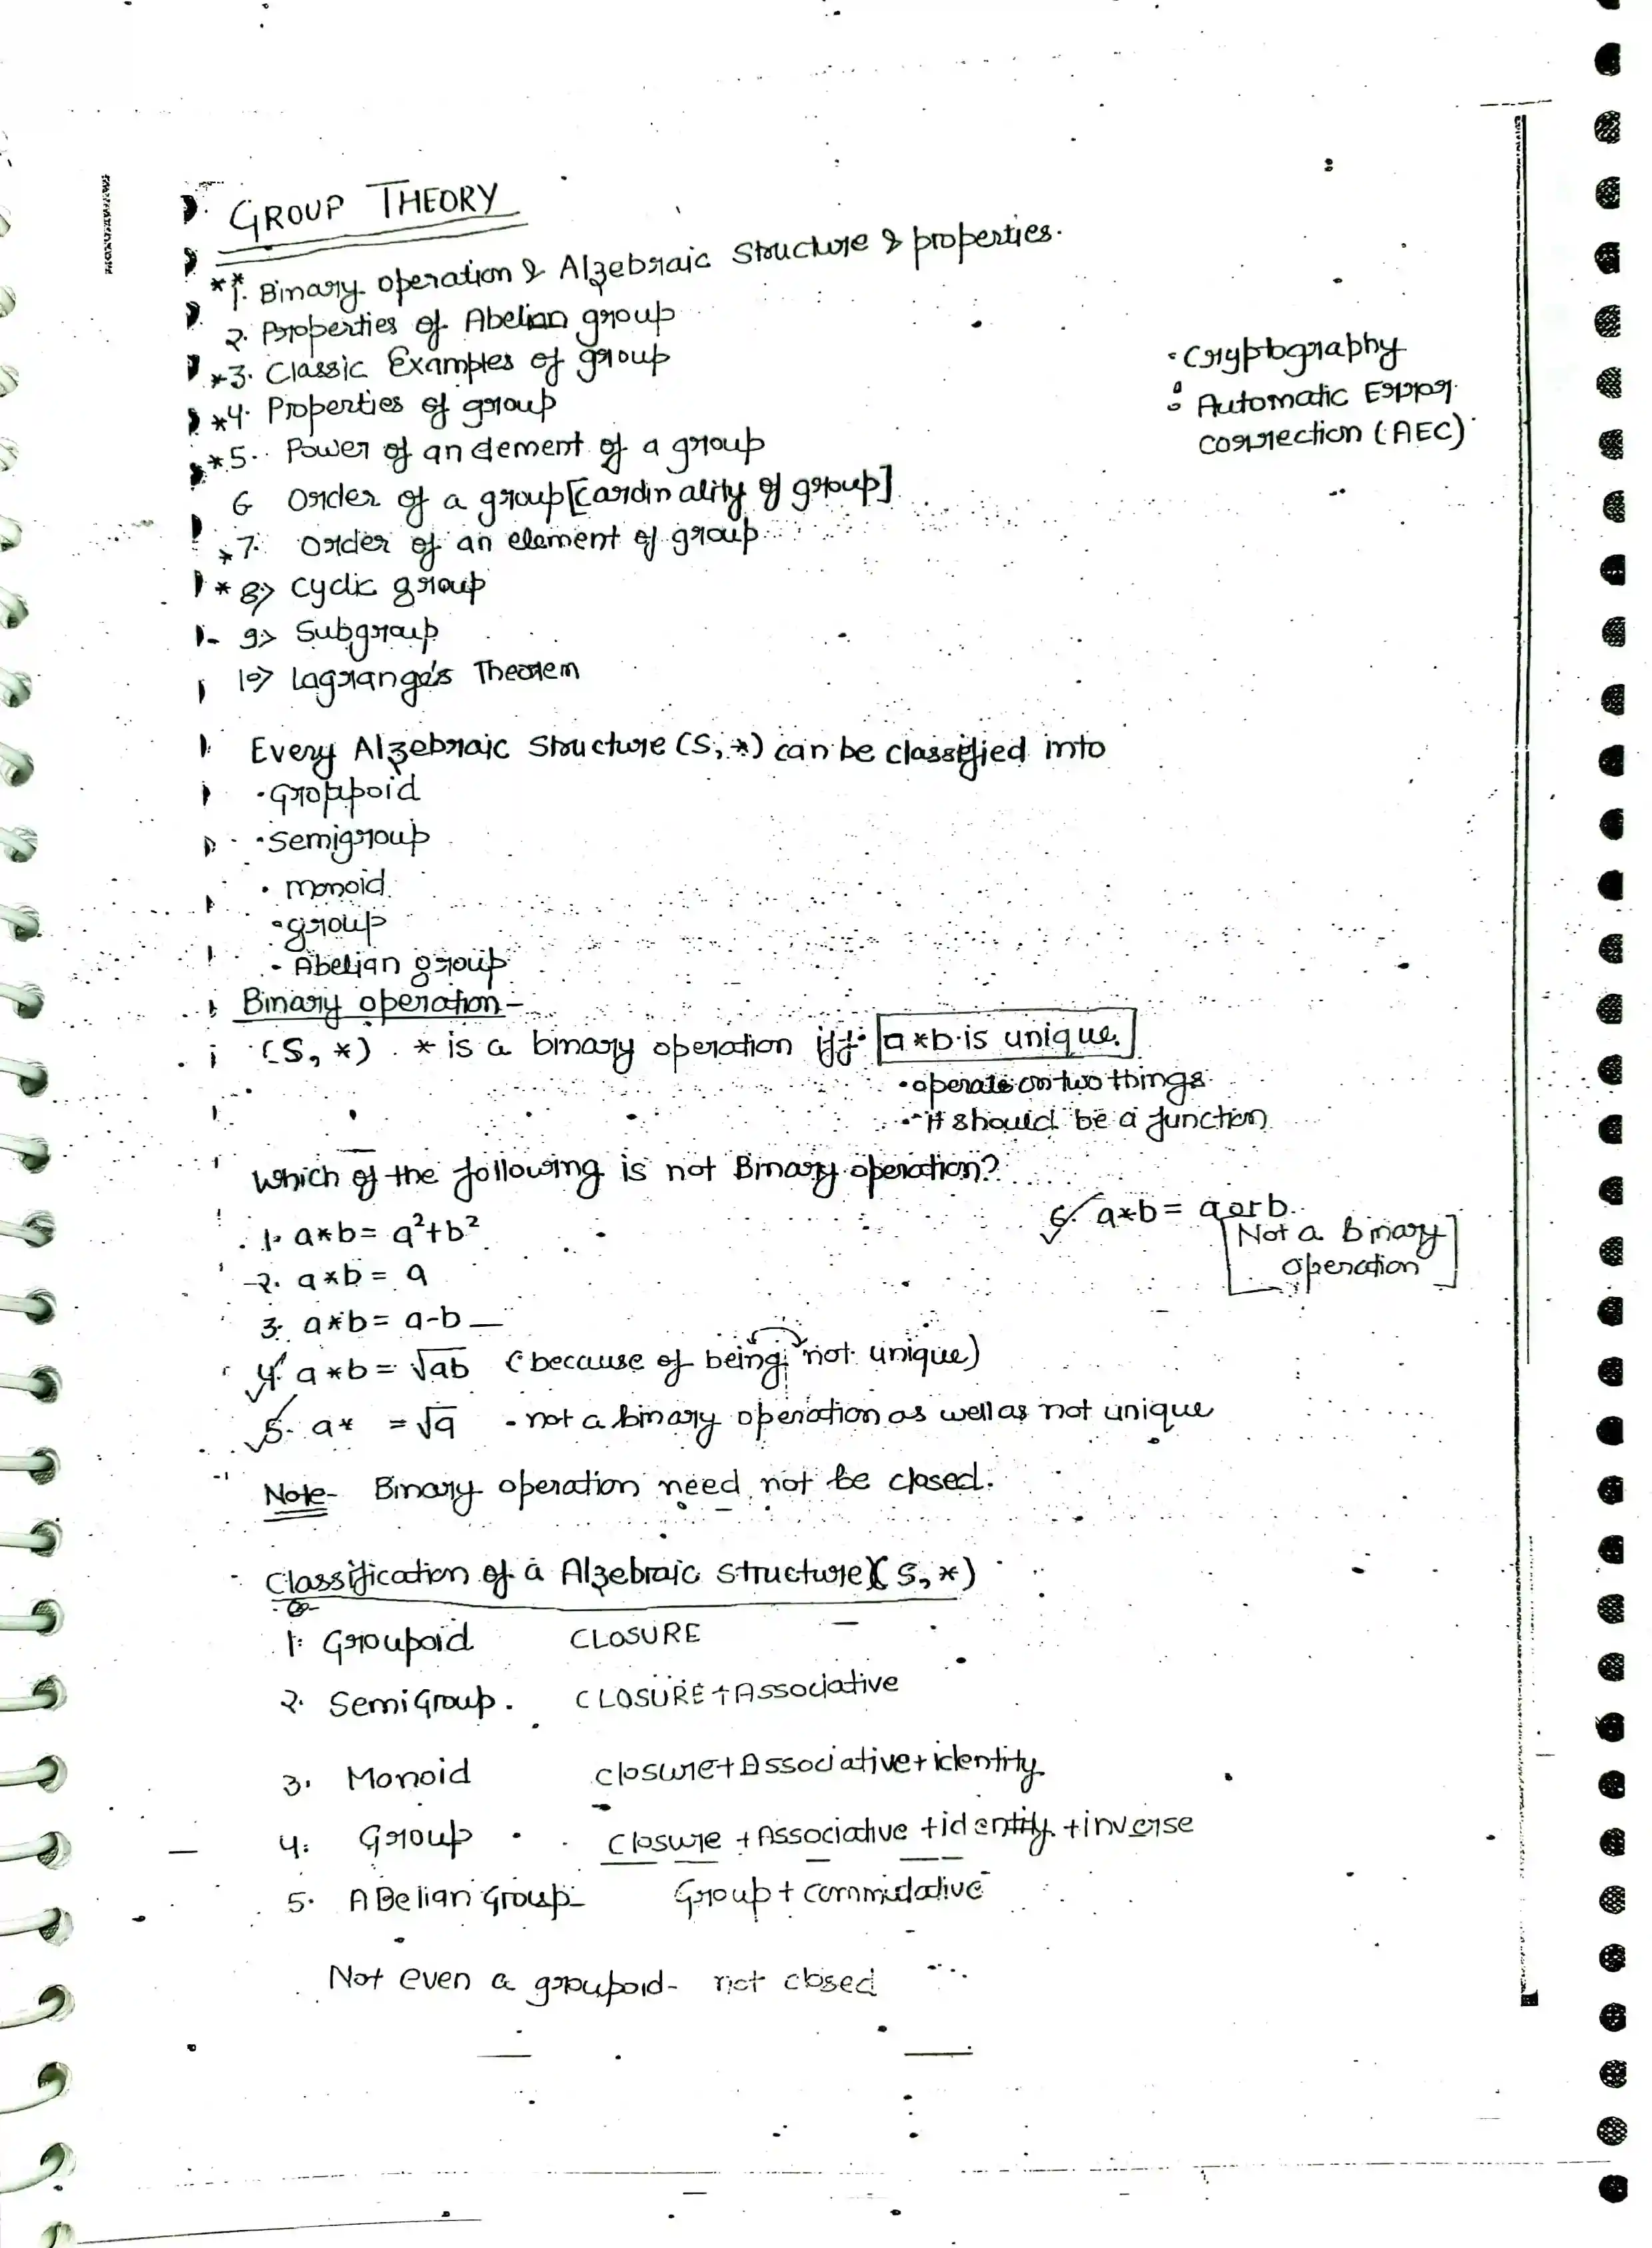 GROUP THEORY
** 1. Binary operation & Algebraic Structure & properties.
2. Properties of Abelian group
*3. Classic Examples of group
*4. Properties of group
*5. Power of an element of a group
6 Order of a group [cardinality of group]
*7. Order of an element of group
*8> Cyclic group
9> Subgroup
10> Lagrange's Theorem
• Cryptography
• Automatic Error
Correction (AEC)
Every Algebraic Structure (S, *) can be classified into
• Groupoid
• Semigroup
• monoid
• group
• Abelian group
Binary operation -
(S, *) . * is a binary operation iff a*b is unique.
• operate on two things
• it should be a function
Which of the following is not Binary operation?
1. a*b = a²+b²
2. a*b = a
3. a*b = a-b
4. a*b = √ab (because of being not unique)
5. a* = √a - not a binary operation as well as not unique
6. a*b = a or b
Not a binary
operation
Note- Binary operation need not be closed.
Classification of a Algebraic structure (S, *)
1. Groupoid CLOSURE
2. SemiGroup. CLOSURE + Associative
3. Monoid closure + Associative + identity
4. Group closure + Associative + identity + inverse
5. ABelian Group- Group + commutative
Not even a groupoid - not closed